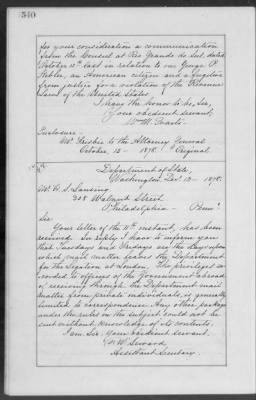 540
for your consideration a communication
from the Consul at Rio Grande do Sul, dated
October 15th last in relation to one George P.
an American citizen and a fugitive
from justice for a violation of the Revenue
Laws of the United States.
I have the honor to be, Sir,
Your obedient servant,
Wm. M. Evarts.
Enclosure—
Mr. to the Attorney General
October 15 – 1878. Original
Department of State,
Washington, Dec. 13 – 1878.
Mr. R. S. Lansing
208 Walnut Street
Philadelphia – Penn.
Sir
Your letter of the 11th instant, has been
received. In reply I have to inform you
that Tuesdays and Fridays are the days upon
which mail matter leaves the Department
for the Legation at London. The privilege ac-
corded to officers of the Government abroad
of receiving through the Department mail
matter from private individuals, is generally
limited to correspondence. Any other package
under the rules on the subject could not be
sent without knowledge of its contents.
I am, Sir, your obedient servant.
F. W. Seward
Assistant Secretary.